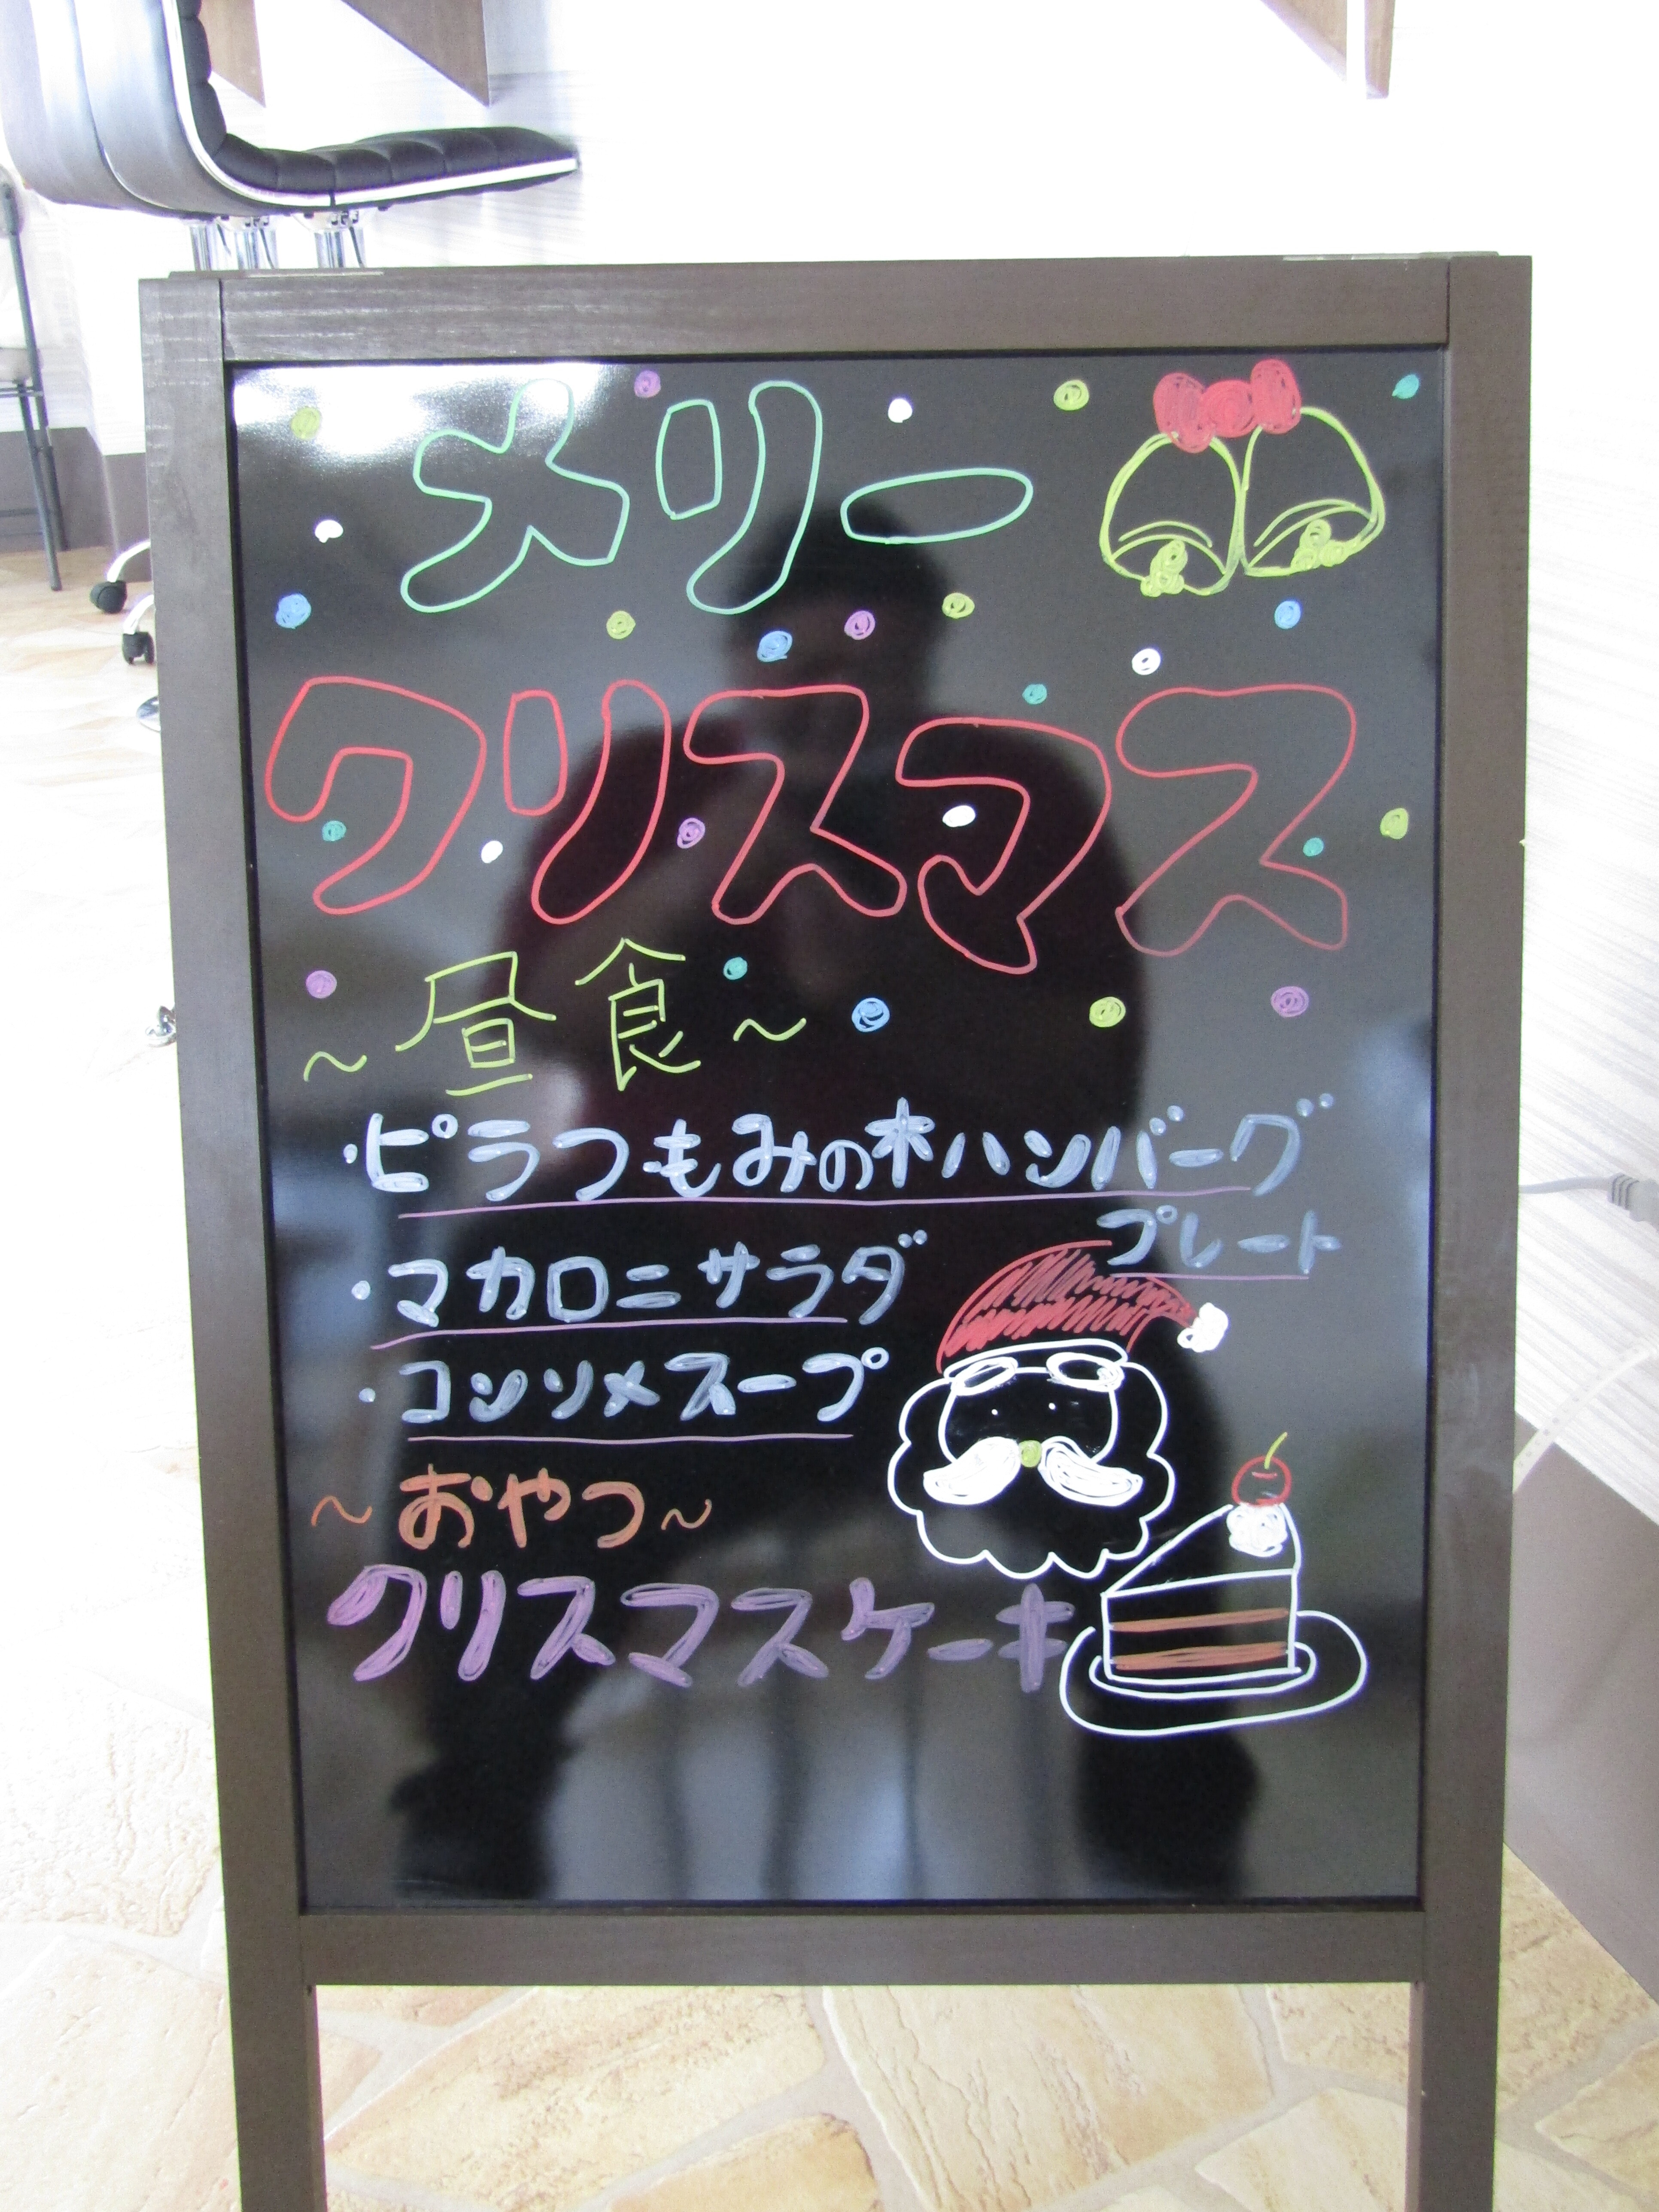 メリー
クリスマス
～昼食～
・ピラフもみの木ハンバーグ
プレート
・マカロニサラダ
・コンソメスープ
～おやつ～
クリスマスケーキ